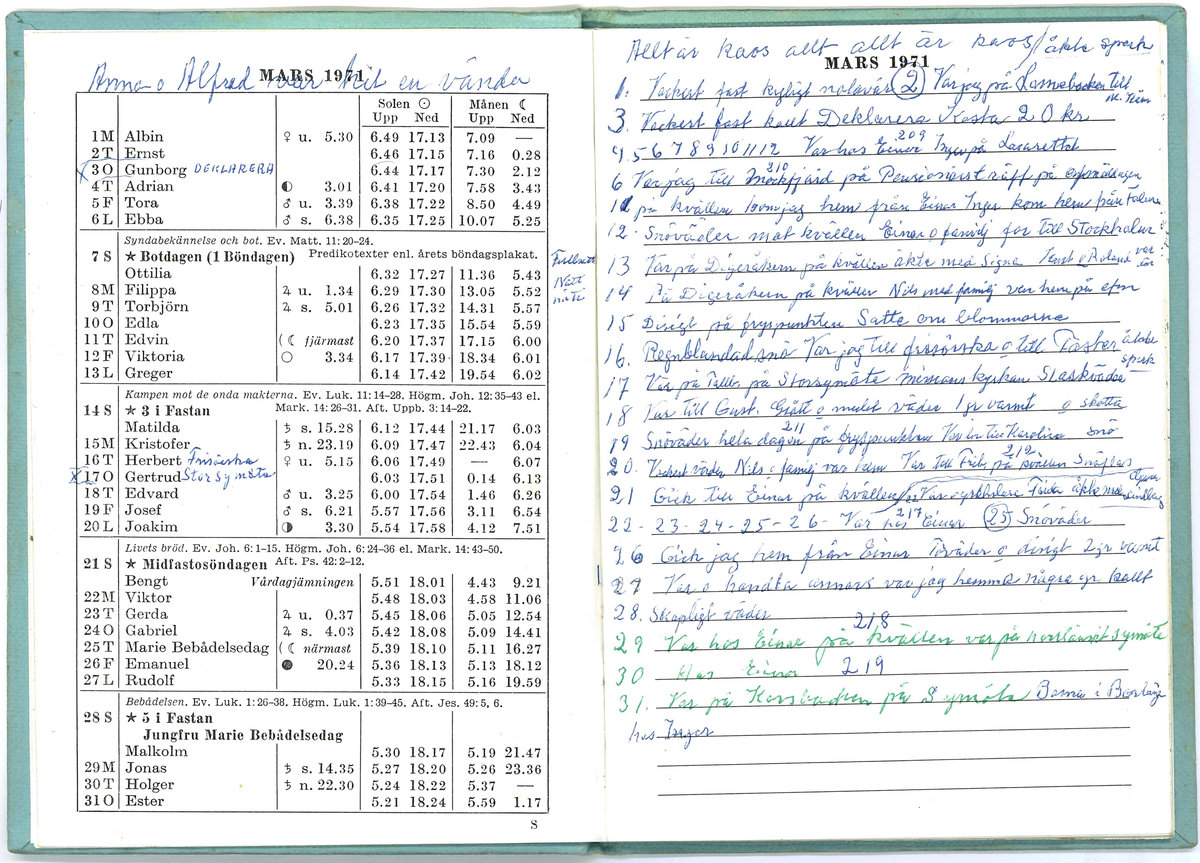 Anna o Alfred var hit en vända
MARS 1971
Solen ☉ Månen ☾
Upp Ned Upp Ned
1 M Albin ♀ u. 5.30 6.49 17.13 7.09 —
2 T Ernst 6.46 17.15 7.16 0.28
3 O Gunborg DEKLARERA 6.44 17.17 7.30 2.12
4 T Adrian ◐ 3.01 6.41 17.20 7.58 3.43
5 F Tora ♂ u. 3.39 6.38 17.22 8.50 4.49
6 L Ebba ♂ s. 6.38 6.35 17.25 10.07 5.25
Syndabekännelse och bot. Ev. Matt. 11: 20-24.
7 S ★ Botdagen (1 Böndagen) Predikotexter enl. årets böndagsplakat.
Ottilia 6.32 17.27 11.36 5.43
8 M Filippa ♃ u. 1.34 6.29 17.30 13.05 5.52
9 T Torbjörn ♃ s. 5.01 6.26 17.32 14.31 5.57
10 O Edla 6.23 17.35 15.54 5.59
11 T Edvin (☾ fjärmast 6.20 17.37 17.15 6.00
12 F Viktoria ○ 3.34 6.17 17.39 18.34 6.01
13 L Greger 6.14 17.42 19.54 6.02
Kampen mot de onda makterna. Ev. Luk. 11: 14-28. Högm. Joh. 12: 35-43 el.
14 S ★ 3 i Fastan Mark. 14: 26-31. Aft. Uppb. 3: 14-22.
Matilda ♄ s. 15.28 6.12 17.44 21.17 6.03
15 M Kristofer ♄ n. 23.19 6.09 17.47 22.43 6.04
16 T Herbert Frisörska ♀ u. 5.15 6.06 17.49 — 6.07
17 O Gertrud Storsymöte 6.03 17.51 0.14 6.13
18 T Edvard ♂ u. 3.25 6.00 17.54 1.46 6.26
19 F Josef ♂ s. 6.21 5.57 17.56 3.11 6.54
20 L Joakim ◑ 3.30 5.54 17.58 4.12 7.51
Livets bröd. Ev. Joh. 6: 1-15. Högm. Joh. 6: 24-36 el. Mark. 14: 43-50.
21 S ★ Midfastosöndagen Aft. Ps. 42: 2-12.
Bengt Vårdagjämningen 5.51 18.01 4.43 9.21
22 M Viktor 5.48 18.03 4.58 11.06
23 T Gerda ♃ u. 0.37 5.45 18.06 5.05 12.54
24 O Gabriel ♃ s. 4.03 5.42 18.08 5.09 14.41
25 T Marie Bebådelsedag (☾ närmast 5.39 18.10 5.11 16.27
26 F Emanuel ● 20.24 5.36 18.13 5.13 18.12
27 L Rudolf 5.33 18.15 5.16 19.59
Bebådelsen. Ev. Luk. 1: 26-38. Högm. Luk. 1: 39-45. Aft. Jes. 49: 5, 6.
28 S ★ 5 i Fastan
Jungfru Marie Bebådelsedag
Malkolm 5.30 18.17 5.19 21.47
29 M Jonas ♄ s. 14.35 5.27 18.20 5.26 23.36
30 T Holger ♄ n. 22.30 5.24 18.22 5.37 —
31 O Ester 5.21 18.24 5.59 1.17
S
Allt är kaos allt allt är kaos / åkte spark
MARS 1971
1. Vackert fast kyligt (2) Var jag på till
3. Vackert fast kallt Deklarera Kosta 20 kr
4. 5 6 7 8 9 10 11 12 Var hos Einar 209 Inger på Lasarettet
6 Var jag till Mockfjärd 210 på Pensionärsträff på
11 på kvällen kom jag hem från Einar Inger kom hem från Falun
12. Snöväder mot kvällen Einar o familj for till Stockholm
13 Var på Digeråkern på kvällen åkte med Signe o Roland
14 På Digeråkern på kvällen Nils med familj var hem på efm
15 Disigt på fryspunkten Satte om blommorna
16. Regnblandad snö Var jag till frisörska o till åkte spark
17 Var på på Storsymöte kyrkan
18 Var till Gust. Grått o mulet väder 1 gr varmt o skotta
19 Snöväder hela dagen 211 på fryspunkten Var till Karolina snö
20. Vackert väder Nils o familj var hem Var till på kvällen 212
21 Gick till Einar på kvällen Var Frida åkte med
22-23-24-25-26- Var hos Einar 217 (25) Snöväder
26 Gick jag hem från Einar o disigt 2 gr varmt
27 Var o handla annars var jag hemma några gr kallt
28. Skapligt väder 218
29 Var hos Einar på kvällen var på symöte
30 Hos Einar 219
31. Var på på Symöte i Borlänge
hos Inger